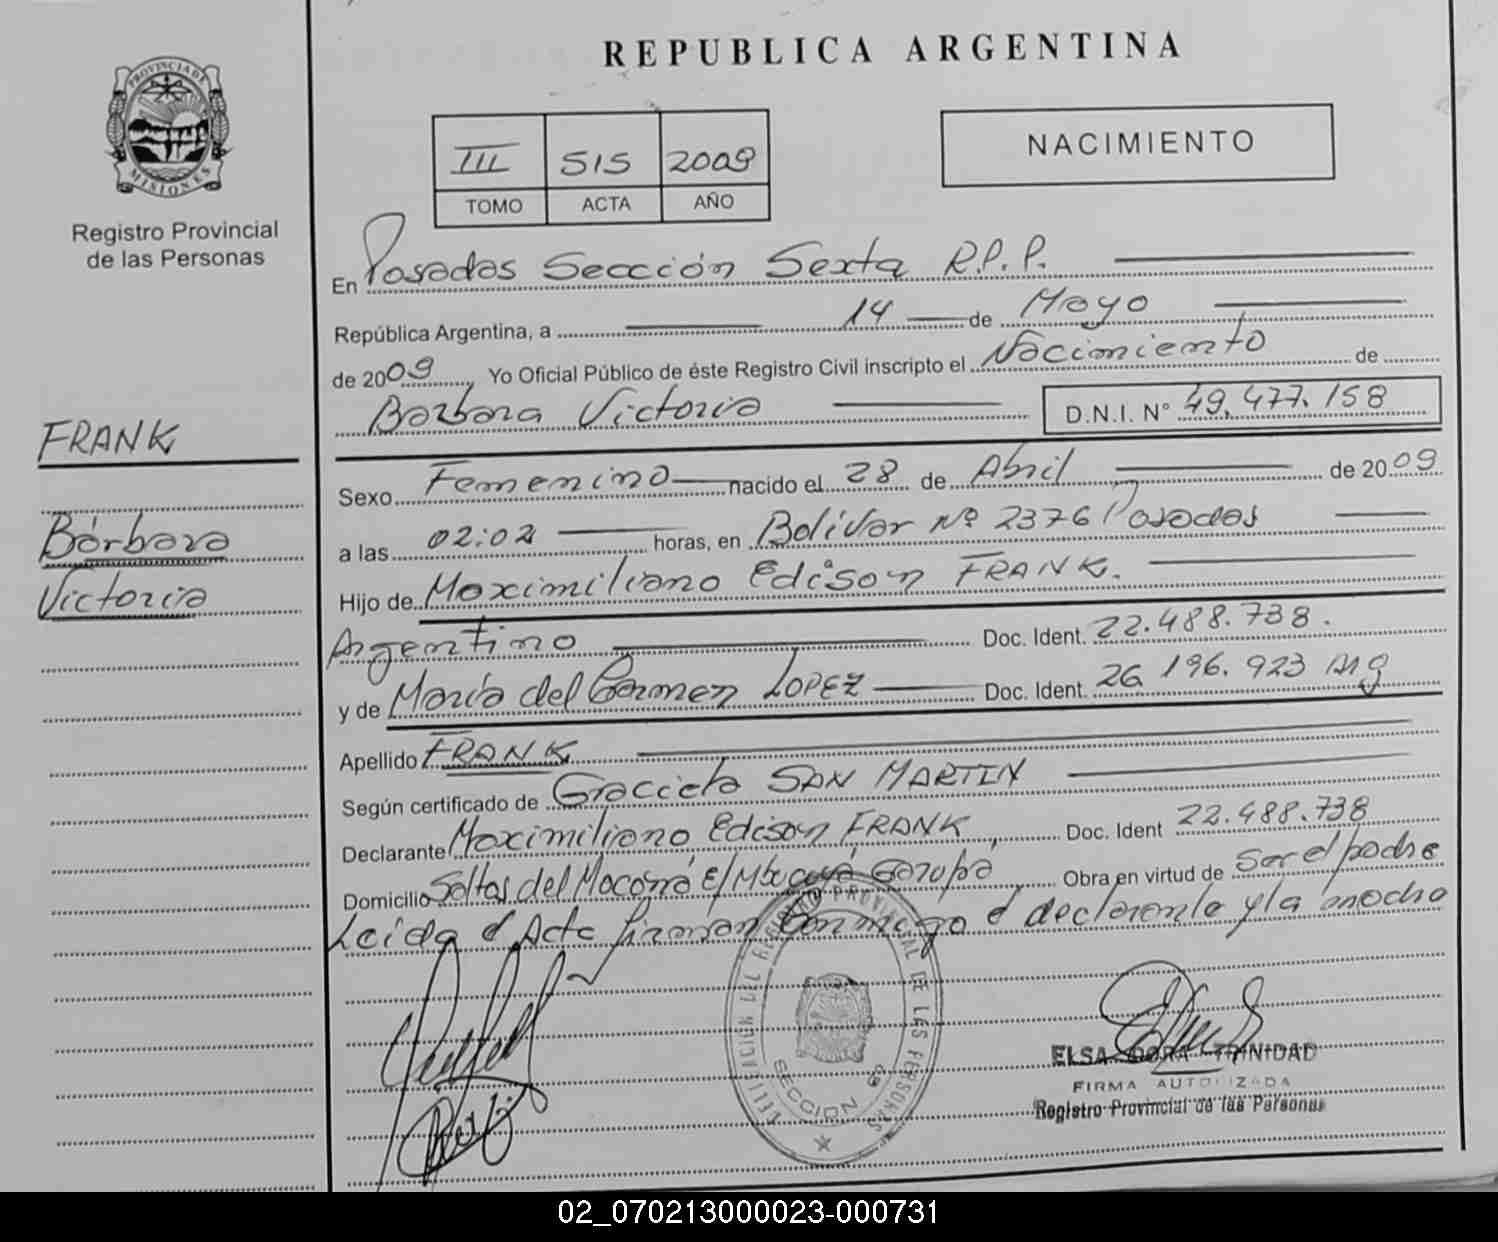 REPUBLICA ARGENTINA
PROVINCIA DE
MISIONES
Registro Provincial
de las Personas
III 515 2009
TOMO ACTA AÑO
NACIMIENTO
En Posadas Sección Sexta R.P.P.
República Argentina, a 14 de Mayo
de 2009, Yo Oficial Público de éste Registro Civil inscripto el Nacimiento de
Barbara Victoria D.N.I. N° 49.477.158
FRANK
Bárbara
Victoria
Sexo Femenino nacido el 28 de Abril de 2009
a las 02:02 horas, en Bolívar Nº 2376 Posadas
Hijo de Maximiliano Edison FRANK.
Argentino Doc. Ident. 22.488.738.
y de María del Carmen LOPEZ Doc. Ident. 26 196.923 Arg
Apellido FRANK
Según certificado de Graciela SAN MARTIN
Declarante Maximiliano Edison FRANK, Doc. Ident 22.488.738
Domicilio Saltos del Moconá E/ Mbucuyá Garupá Obra en virtud de Ser el padre
Leida el Acta firman Conmigo el declarante y la
REGISTRO PROVINCIAL DE LAS PERSONAS
SECCION 6ª
ELSA DORA TRINIDAD
FIRMA AUTORIZADA
Registro Provincial de las Personas
02_070213000023-000731